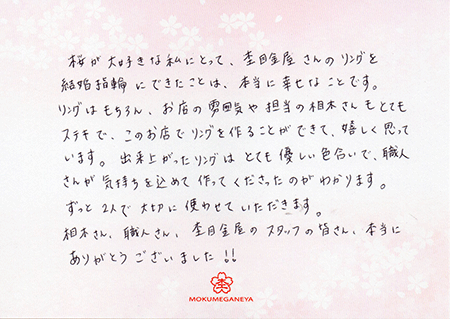 桜が大好きな私にとって、杢目金屋さんのリングを
結婚指輪にできたことは、本当に幸せなことです。
リングはもちろん、お店の雰囲気や担当の相木さんもとても
ステキで、このお店でリングを作ることができて、嬉しく思って
います。出来上がったリングはとても優しい色合いで、職人
さんが気持ちを込めて作ってくださったのがわかります。
ずっと2人で大切に使わせていただきます。
相木さん、職人さん、杢目金屋のスタッフの皆さん、本当に
ありがとうございました!!
MOKUMEGANEYA